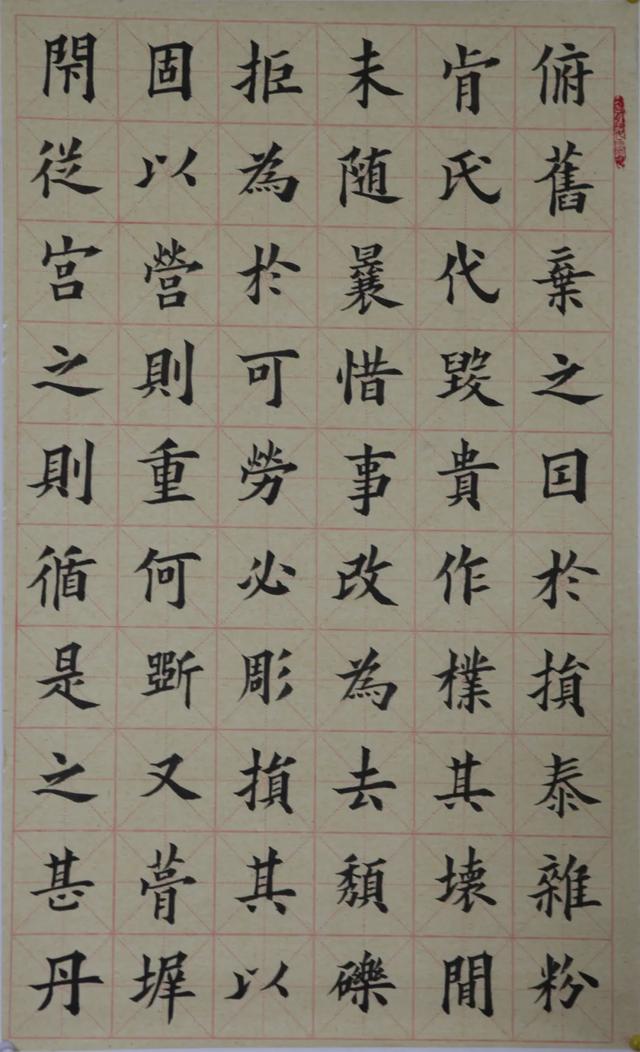 閇固拒未肯俯
從以為随氏舊
宫營於曩代棄
之則可惜毀之
則重勞事貴囙
循何必改作於
是斲彫為樸損
之又損去其泰
甚葺其頽壞雜
丹墀以礫閒粉